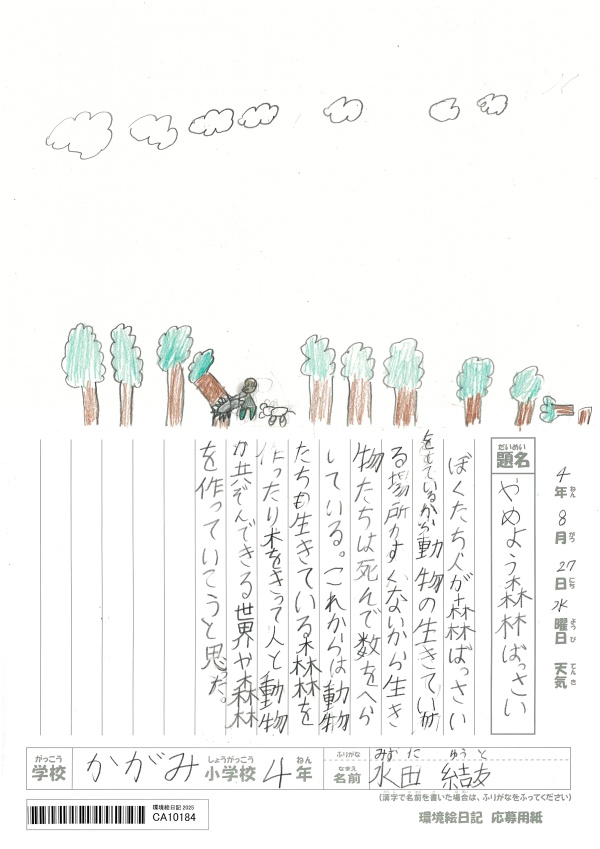 4年 8月 27日 水曜日 天気
題名 だいめい
やめよう森林ばっさい
ぼくたち人が森林ばっさい
をしているから動物の生きてい
る場所がすくないから生き
物たちは死んで数をへら
している。これからは動物
たちも生きている森林を
作ったり木をきって人と動物
が共ぞんできる世界や森林
を作っていこうと思った。
がっこう 学校 かがみ しょうがっこう 小学校 4 ねん 年
ふりがな
なまえ 名前 水田 結友
(漢字で名前を書いた場合は、ふりがなをふってください)
環境絵日記 2025
CA10184
環境絵日記 応募用紙